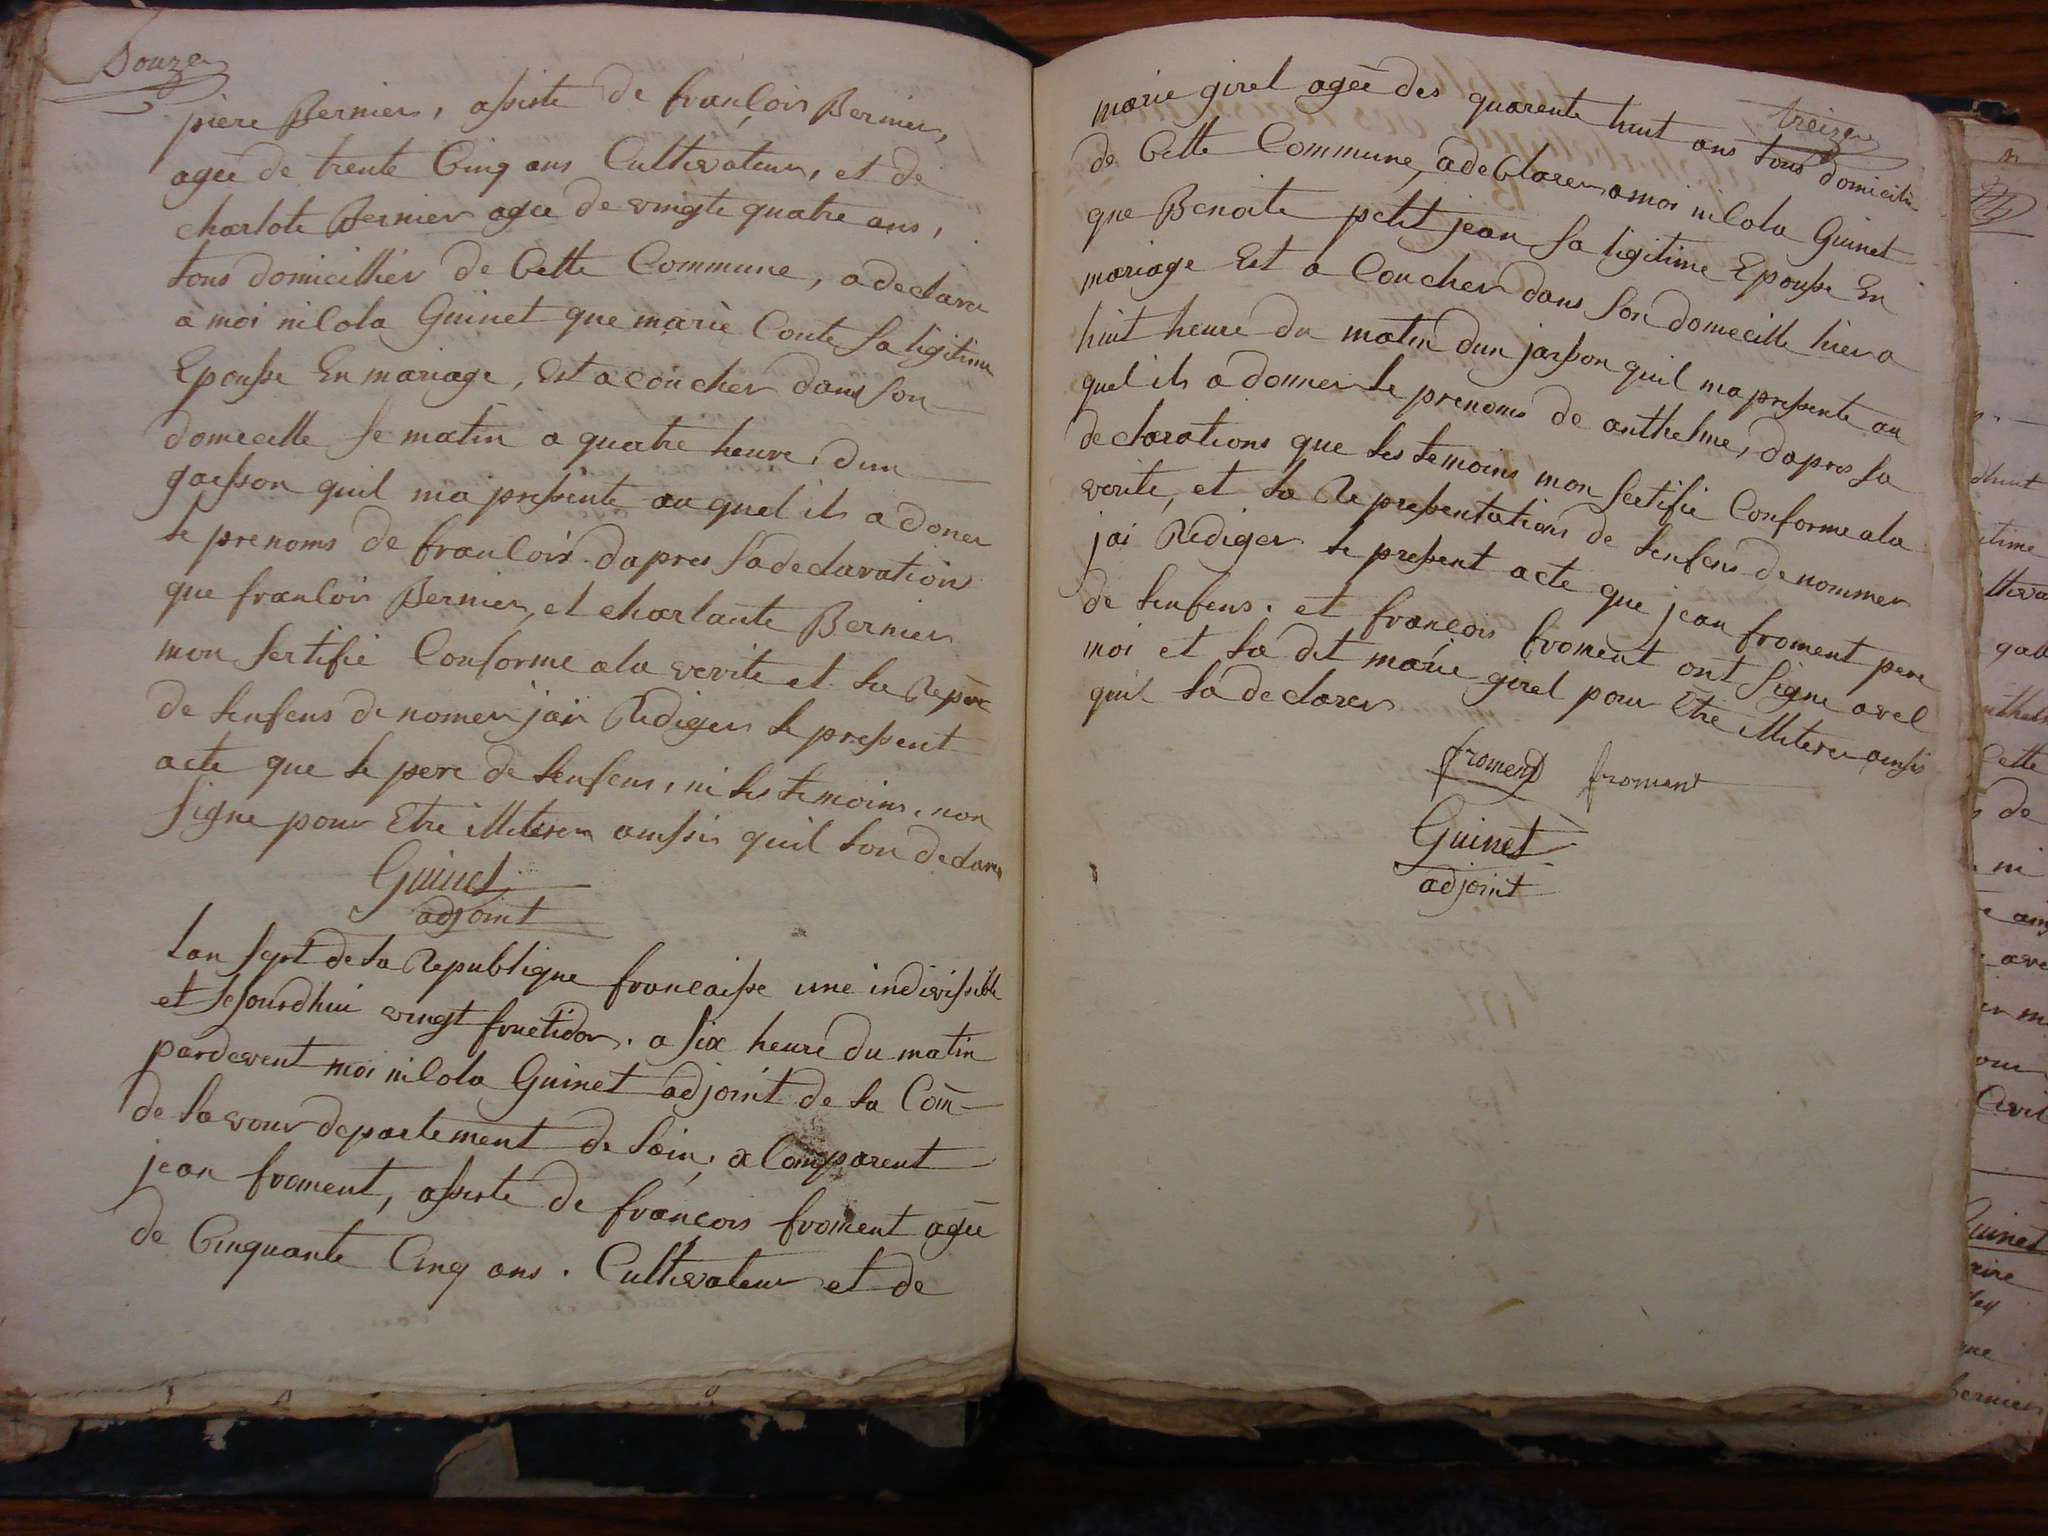 Douze
piere Bernier, assiste de françois Bernier,
agée de trente Cinq ans Cultivateur, et de
charlote Bernier agée de vingte quatre ans,
tous domicilliér de Cette Commune, a declarer
à moi nicola Guinet que mariè Conte sa ligitime
Epousse En mariage, Est acoucher dans son
domecille se matin a quatre heure, dun
garsson quil ma pressente au quel ils a doner
le prenoms de françois. dapres sa declarations
que françois Bernier, et charlaute Bernier
mon sertifié Conforme ala verite et la Repõe
de lenfens de nomer jai Rediger le pressent
acte que le pere de lenfens, ni les temoins, non
signe pour Etre illiterer aussis quil lon declarer
Guinet
adjoint
lan sept de la Republique francaisse une indivissible
et sejourdhui vingt fructidor. a six heure du matin
pardevent moi nicola Guinet adjoint de la Com̃
de lavour departement de lain, a Comparent
jean froment, assiste de françois froment agée
de Cinquante Cinq ans. Cultivateur et de
treize
marie girel agée des quarente huit ans tous domicilié
de Cette Commune, a declarer a moi nicola Guinet
que Benoite petit jean sa ligitime Epousse En
mariage Est a Coucher dans son domecille hier a
huit heure du matin dun jarsson quil ma pressente au
quel ils a donner le prenoms de anthelme, dapres sa
declarations que les temoins mon sertifie Conforme ala
verite, et la Repressentations de lenfens de nommer
jai Rediger le pressent acte que jean froment pere
de lenfens. et françois froment ont signe avec
moi et la dit marie girel pour Etre illiterer aussis
quil la declarer
froment froment
Guinet
adjoint